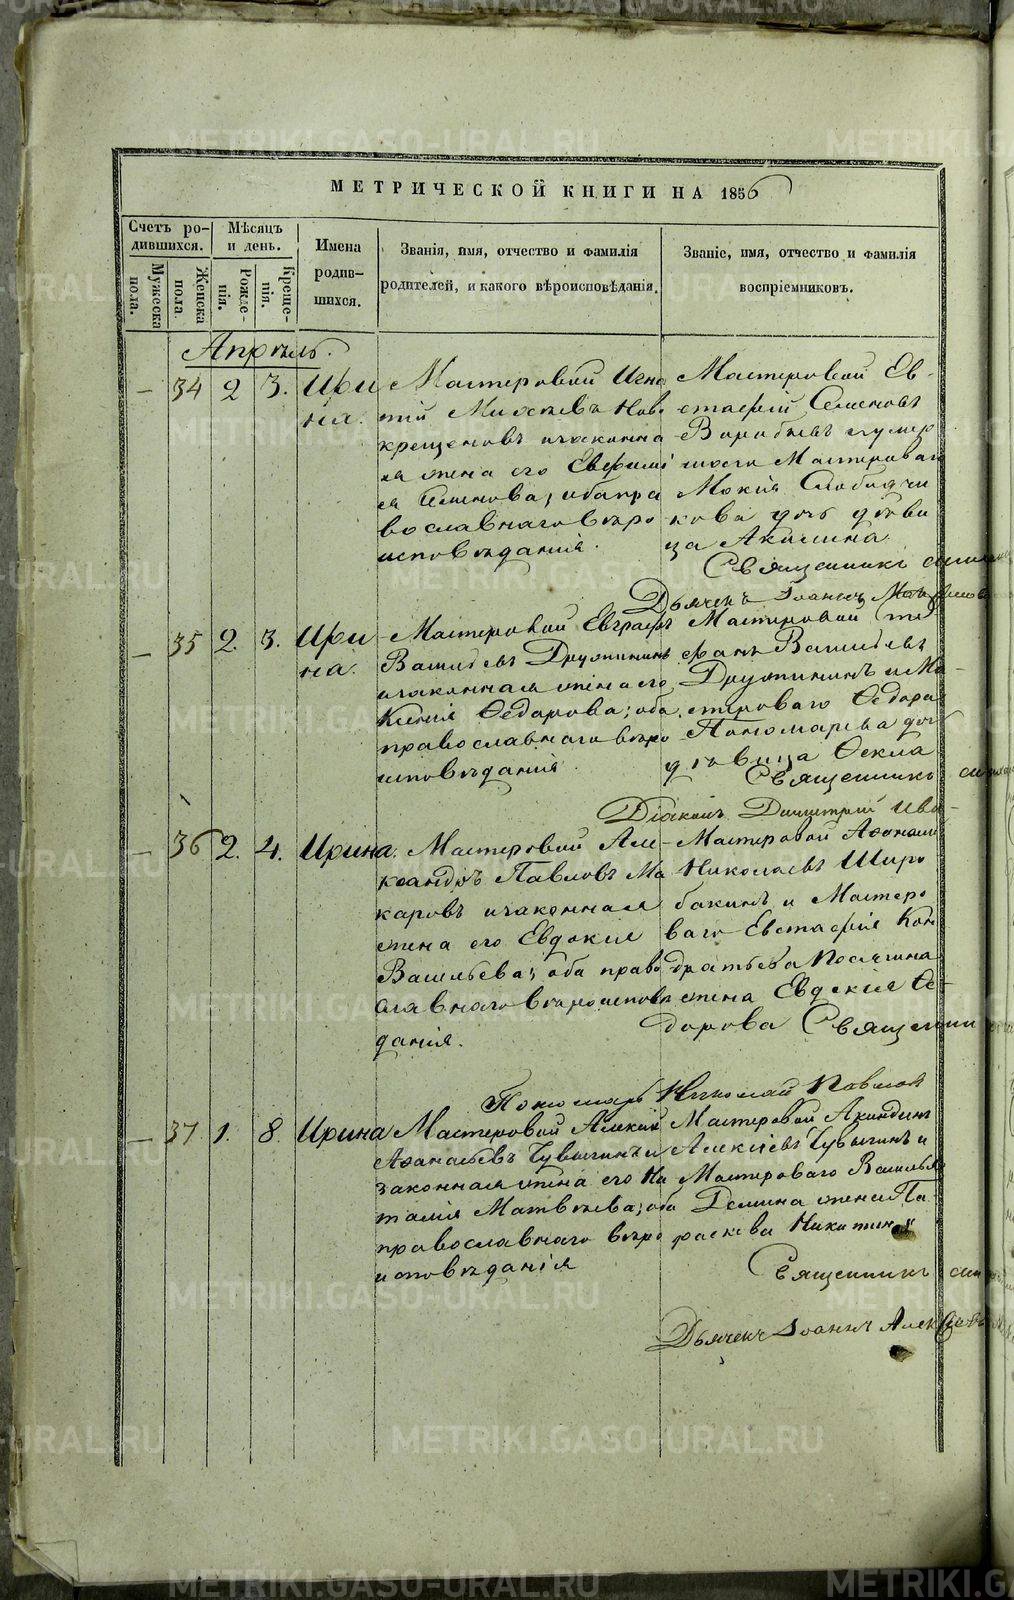 МЕТРИЧЕСКОЙ КНИГИ НА 1856
Счетъ ро- дившихся.
Мѣсяцъ и день.
Имена родив- шихся.
Званія, имя, отчество и фамилія родителей, и какого вѣроисповѣданія.
Званіе, имя, отчество и фамилія воспріемниковъ.
Мужеска пола.
Женска пола
Рожде- нія.
Креще- нія.
Апрѣль.
— 34 2 3. Ири
на.
Мастеровой Игна
тій Михѣевъ Ново
крещеновъ и законна
я жена его Евфимі
я Семенова; оба пра
вославнаго вѣро
исповѣданія.
Мастеровой Ев-
стафій Семеновъ
Воробьевъ и умер
шаго Мастероваго
Мокія Слободчи
кова дочь дѣви
ца Акилина.
Священникъ
Дьячекъ Іоаннъ
— 35 2. 3. Ири
на.
Мастеровой Евграфъ
Васильевъ Дружининъ
и законная жена его
Ксенія Ѳедорова; оба
православнаго вѣро
исповѣданія.
Мастеровой Сте
фанъ Васильевъ
Дружининъ и Ма-
стероваго Ѳедора
Пономарева дочь
дѣвица Ѳекла
Священникъ
Діаконъ Димитрій Ива-
— 36 2. 4. Ирина.
Мастеровой Але-
ксандръ Павловъ Ма
каровъ и законная
жена его Евдокія
Васильева; оба право
славнаго вѣроисповѣ
данія.
Мастеровой Аѳанасій
Николаевъ Широ
бакинъ и Мастеро
ваго Евстафія Кон
дратьева
жена Евдокія Ѳе-
дорова Священни
Пономарь Николай Павлов
— 37. 1. 8. Ирина
Мастеровой Алексій
Аѳанасьевъ Чувыгинъ и
законная жена его На
талія Матвѣева; оба
православнаго вѣро
исповѣданія
Мастеровой Акиндинъ
Алексіевъ Чувыгинъ и
Мастероваго Василья
Демина жена Па
раскева Никитина
Священникъ
Дьячекъ Іоаннъ Алек
METRIKI.GASO-URAL.RU